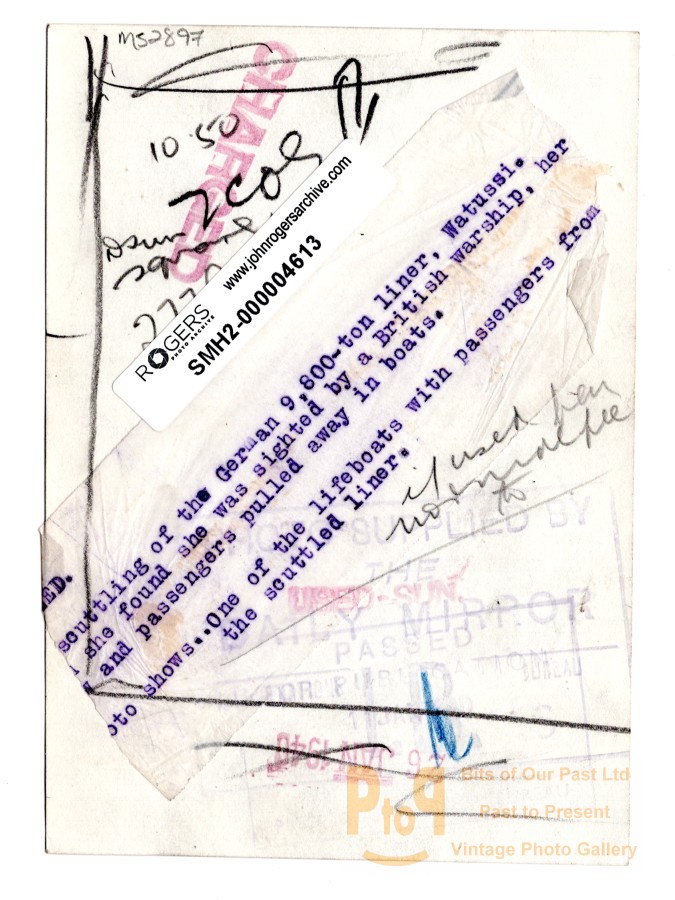 MS2897
CHARGED
10.50
2col
ROGERS
PHOTO ARCHIVE
www.johnrogersarchive.com
SMH2-000004613
ED.
scuttling of the German 9,800-ton liner, Watussi.
she found she was sighted by a British warship, her
and passengers pulled away in boats.
oto shows..One of the lifeboats with passengers from
the scuttled liner.
if used pen
normal fee
to
PHOTO SUPPLIED BY
THE
USED-SUN.
DAILY MIRROR
PASSED
FOR PUBLICATION
26 JAN 1940
PtoP
Bits of Our Past Ltd
Past to Present
Vintage Photo Gallery